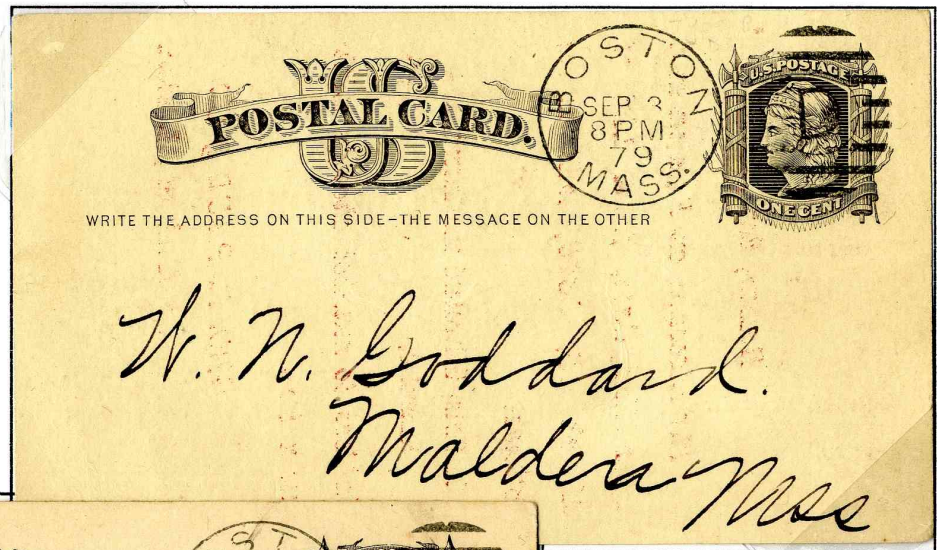 US
POSTAL CARD.
BOSTON
SEP 3
8 PM
79
MASS.
U.S. POSTAGE
ONE CENT
WRITE THE ADDRESS ON THIS SIDE-THE MESSAGE ON THE OTHER
W. N. Goddard.
Malden Mss
ST